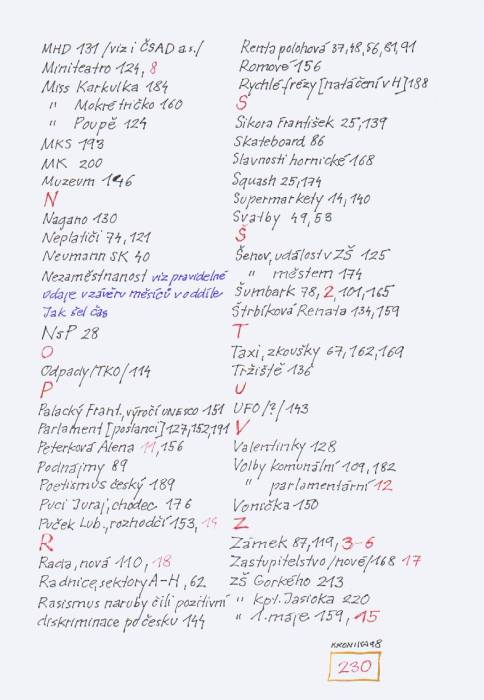 MHD 131 /viz i ČSAD a.s./
Miniteatro 124, 8
Miss Karkulka 184
" Mokré tričko 160
" Poupě 124
MKS 193
MK 200
Muzeum 146
N
Nagano 130
Neplatiči 74, 121
Neumann SK 40
Nezaměstnanost viz pravidelné
údaje v závěru měsíců v oddíle
Jak šel čas
NsP 28
O
Odpady/TKO/114
P
Palacký Frant., výročí UNESCO 151
Parlament [poslanci] 127,152,191
Peterková Alena 11, 156
Podnájmy 89
Poetismus český 189
Puci Juraj, chodec 176
Puček Lub., rozhodčí 153, 19
R
Rada, nová 110, 18
Radnice, sektory A-H, 62
Rasismus naruby čili pozitivní
diskriminace po česku 144
Renta polohová 37,48,56,81,91
Romové 156
Rychlé frézy [natáčení v H] 188
S
Sikora František 25,139
Skateboard 86
Slavnosti hornické 168
Squash 25,174
Supermarkety 14, 140
Svatby 49, 53
Š
Šenov, událost v ZŠ 125
" městem 174
Šumbark 78, 2, 101, 165
Štrbíková Renata 134, 159
T
Taxi, zkoušky 67, 162, 169
Tržiště 136
U
UFO /?/ 143
V
Valentinky 128
Volby komunální 109, 182
" parlamentární 12
Vonička 150
Z
Zámek 87, 119, 3-6
Zastupitelstvo /nové/168 17
ZŠ Gorkého 213
" kpt. Jasioka 220
" 1. máje 159, 15
KRONIKA 98
230